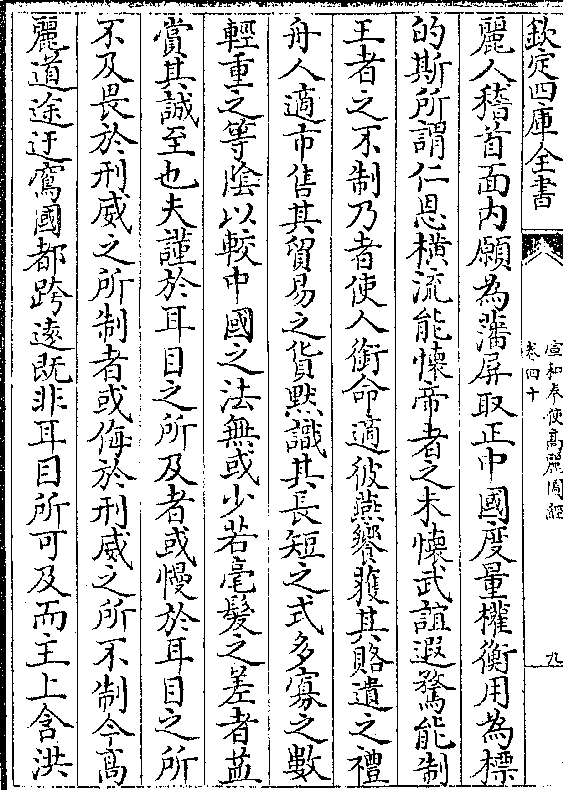 欽定四庫全書
宣和奉使高麗圖經
卷四十
九
麗人稽首面内願為藩屏取正中國度量權衡用為標
的斯所謂仁恩橫流能懷帝者之未懷武誼遐騖能制
王者之不制乃者使人銜命適彼燕饗獲其賂遺之禮
舟人適市售其貿易之貨黙識其長短之式多寡之數
輕重之等隂以較中國之法無或少若毫髮之差者益
賞其誠至也夫謹於耳目之所及者或慢於耳目之所
不及畏於刑威之所制者或侮於刑威之所不制今髙
麗道途迂窵國都跨逺既非耳目所可及而主上含洪